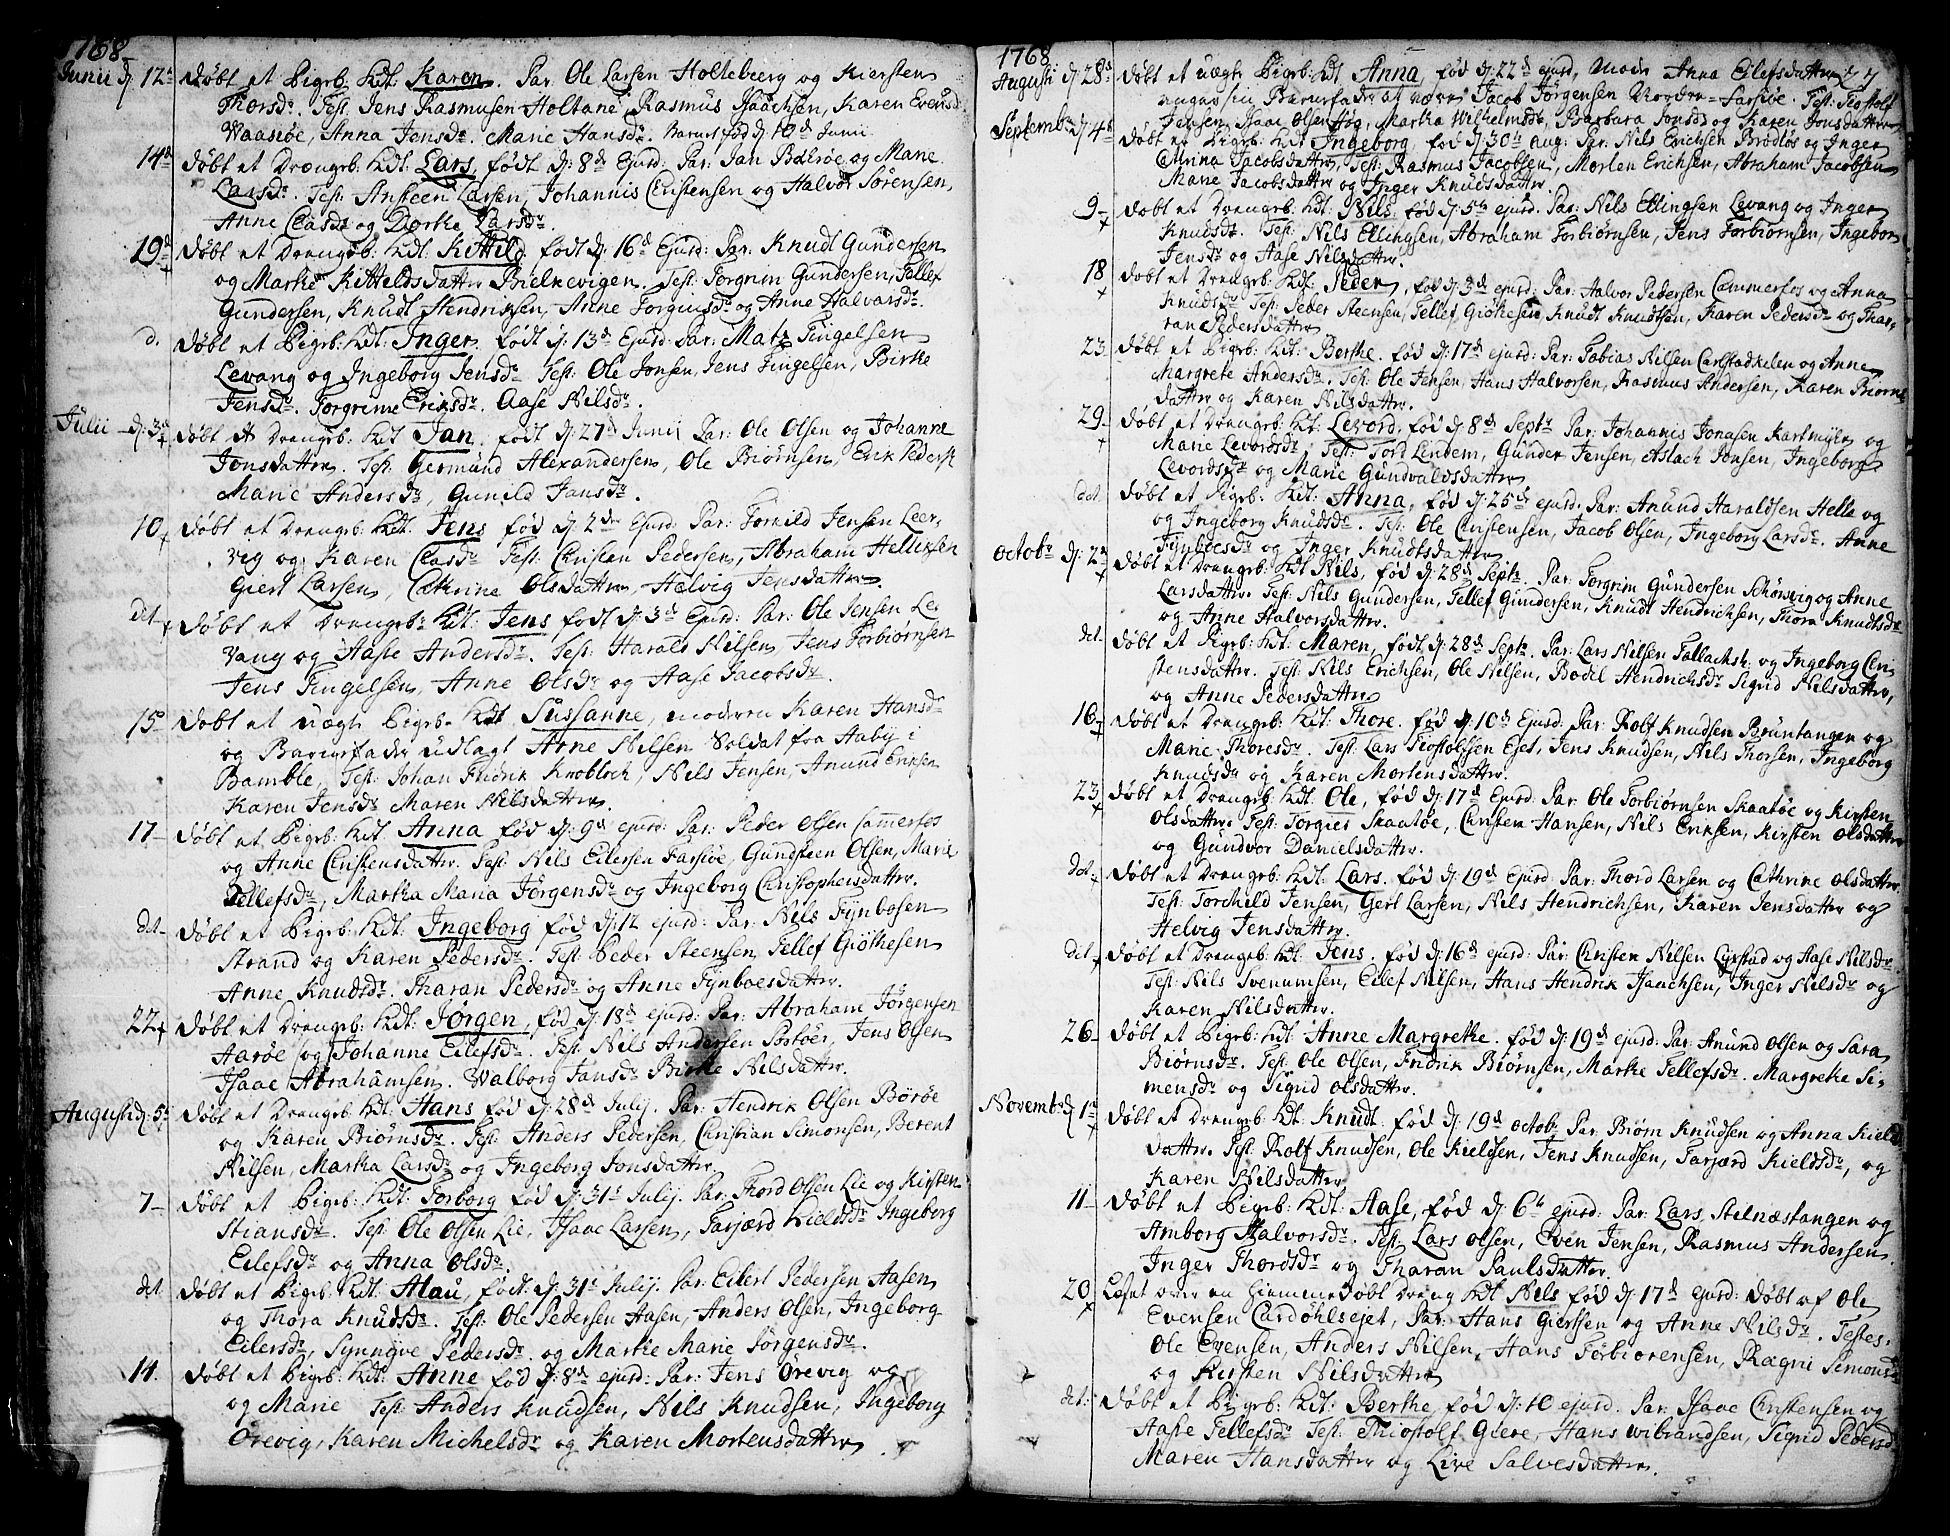 1768
Junii d. 12 Døbt et Pigeb: kdt Karen. Par Ole Larsen Holteberg og Kiersten
Thorsdr. Test. Jens Rasmusen Holtane Rasmus Isaachsen, Karen Evensd
Waasøe, Anna Jensdr. Marie Hansdr. Barnet fød d. 10d Junii
14d Døbt et Drengeb. kdt. Lars, født d: 8d Ejusd: Par: Jan Børøe og Marie
Larsdr. Test. Ansteen Larsen, Johannis Christensen og Halvor Sørensen,
Anne Clasdr og Dorthe Larsdr.
19d Døbt et Drengeb: kdt. Kittild, født d. 16d Ejusd: Par: Knudt Gundersen
og Marthe Kittildsdatter Bielkevigen. Test. Torgrim Gundersen, Tellef
Gundersen, Knudt Hendrichsen, Anne Torgiusdr og Anne Halvorsdr.
d. Døbt et Pigeb: kdt: Inger, født d: 13d Ejusd: Par: Matz Tingelsen
Levang og Ingeborg Jensdr Test: Ole Jonsen, Jens Tingelsen, Birthe
Jensdr. Torgrime Eriksdr. Aase Nilsdr.
Julii d: 3d Døbt et Drengeb: kdt Jan, født d: 27d Junii Par: Ole Olsen og Johanne
Jonsdatter. Test. Germund Alexandersen, Ole Biørnsen, Erik Peders
Marie Andersdr, Gunild Jansdr.
10 Døbt et Drengeb. kdt. Jens fød d: 2den Ejusd Par: Torkild Jensen Leer-
vig og Karen Clasdr Test. Christen Pedersen, Abraham Hellissen
Giert Larsen, Cathrine Olsdatter, Helvig Jensdatter.
det Døbt et Drengeb: kdt. Jens født d: 3d Ejusd: Par: Ole Jensen Le
vang og Aaste Andersdr. Test. Harald Nilsen Jens Torbiørnsen
Jens Tingelsen, Anne Olsdr og Aase Jacobsdr.
15 Døbt et uægte Pigeb. kdt Sussanne, moderen Karen Hansdr
og Barnefader udlagt Arne Nilsen Soldat fra Aaby i
Bamble, Test. Johan Fridrik Knobloch, Nils Jensen, Anund Eriksen
Karen Jensdr Maren Nilsdatter.
17 Døbt et Pigeb: kdt Anna fød d: 9d ejusd: Par: Peder Olsen Cammerfos
og Anne Christensdatter. Test. Nils Eilersen Farsiøe, Gundsteen Olsen, Marie
Tellefsdr, Martha Maria Jørgensdr og Ingeborg Christophersdatter.
det Døbt et Pigeb: kdt: Ingeborg fød d: 12 ejusd: Par: Nils Fynbosen
Strand og Karen Pedersdr. Test. Peder Steensen Tellef Giøthesen
Anne Knudsdr. Tharan Pedersdr og Anne Fynboesdatter.
22 Døbt et Drengeb: kdt: Jørgen, fød d: 18d ejusd: Par: Abraham Jørgensen
Aarøe og Johanne Eilefsdr. Test. Nils Andersen Postøer, Jens Olsen
Isaac Abrahamsen. Walborg Jansdr Birthe Nilsdatter.
Augusti d. 5 Døbt et Drengeb: kdt: Hans fød d: 28d Julij. Par: Hendrik Olsen Børøe
og Karen Biørnsdr. Test. Anders Pedersen, Christian Simonsen, Berent
Nilsen, Martha Larsdr og Ingeborg Jonsdatter
7 Døbt et Pigeb: kdt: Torborg fød d: 31t Julij. Par: Thord Olsen Lie og Kirsten
Stiansdr. Test: Ole Olsen Lie, Isaac Larsen, Tarjærd Kieldsdr Ingeborg
Eilefsdr og Anna Olsdr.
det Døbt et Pigeb: kdt: Alau, født d: 31t Julij. Par: Eilert Pedersen Aasen
og Thora Knudsdr. Test: Ole Pedersen Aasen, Anders Olsen, Ingeborg
Eilersdr, Synnøve Pedersdr og Marthe Marie Jørgensdr.
14. Døbt et Pigeb: kdt: Anne fød d: 8d ejusd: Par: Jens Ørevig og
og Marie Test Anders Knudsen, Nils Knudsen, Ingeborg
Ørevig, Karen Michelsdr og Karen Mortensdatter.
1768
77
Augusti d: 28d Døbt et uægte Pigeb: kdt Anna, fød d: 22d ejusd, Modr Anna Eilefsdatter
angav sin Barnefader at være Jacob Jørgensen Nordre-Farsiøe. Test: Tiostolf
Jensen, Isaac Olsen Høg, Martha Wilhelmsdr, Barbara Jonsdr og Karen Jonsdatter
Septembr d: 4d Døbt et Pigeb. kdt Ingeborg, fød d: 30t Aug: Par: Nils Erichsen Brødløs og Inger
Catrina Jacobsdatter, Test: Rasmus Jacobsen, Morten Erichsen, Abraham Jacobsen
Marie Jacobsdatter og Inger Knudsdatter.
9 Døbt et Drengeb. kdt: Nils, fød d: 5t ejusd. Par: Nils Ellingsen Levang og Inger
Knudsdr. Test: Nils Ellingsen, Abraham Torbiørnsen, Jens Torbiørnsen, Ingebor
Jensdr og Aase Nilsdatter.
18 Døbt et Drengeb: kdt: Peder, fød d: 3d ejusd: Par: Halvor Pedersen Cammerfos og Anna
Knudsdr Test: Peder Steensen, Tellef Giøthesen, Knudt Knudtsen, Karen Pedersdr og Tha-
ran Pedersdatter
23 Døbt et Pigeb: kdt: Berthe. fød d: 17d ejusd: Par: Tobias Nilsen Carlstadkelen og Anne
Margrete Andersdr. Test: Ole Jensen, Hans Halvorsen, Rasmus Andersen, Karen Biørns
datter og Karen Nilsdatter.
29 Døbt et Drengeb: kdt: Levord, fød d: 8d Septr Par: Johannis Jonasen Kartmyhr og
Marie Levordsdr, Test: Tord Lindem, Gunder Jensen, Aslach Jonsen, Ingeborg
Levordsdr og Marie Gundvaldsdatter
det Døbt et Pigeb: kdt: Anna, fød d: 25d ejusd. Par: Anund Haraldsen Helle og
og Ingeborg Knudsdr. Test: Ole Christensen, Jacob Olsen, Ingeborg Larsdr. Anne
Fynboesdr og Inger Knudtsdatter
Octobr d: 2d Døbt et Drengeb: kdt Nils, fød d: 28d Septr. Par: Torgrim Gundersen Schørsvig og Anne
Larsdatter. Test: Nils Gundersen, Tellef Gundersen, Knudt Hendrichsen, Thora Knudtsdr
og Anne Halvorsdatter.
det. Døbt et Pigeb: kdt. Maren, født d: 28d Septr. Par: Lars Nilsen Tallachsh. og Ingeborg Chri
stensdatter. Test: Nils Erichsen, Ole Nilsen, Bodil Hendrichsdr Sigrid Nilsdatter,
og Anne Pedersdatter
16 Døbt et Drengeb: kdt. Thore. fød d: 10d Ejusd: Par: Rolf Knudsen Bruntangen og
Marie Thoresdr. Test: Lars Tiostolfsen Eset, Jens Knudsen, Nils Thorsen, Ingeborg
Knudsdr og Karen Mortensdatter.
23 Døbt et Drengeb: kdt. Ole, fød d: 17d Ejusd. Par: Ole Torbiørnsen Skaatøe og Kirsten
Olsdatter. Test: Torgies Skaatøe, Christen Hansen, Nils Eriksen, Kirsten Olsdatter
og Gundvor Danielsdatter.
det Døbt et Drengeb: kdt. Lars. fød d: 19d Ejusd: Par: Thord Larsen og Cathrine Olsdatter.
Test: Torchild Jensen, Gert Larsen, Nils Hendrichsen, Karen Jensdatter og
Helvig Jensdatter.
det Døbt et Drengeb: kdt: Jens. fød d: 16d ejusd: Par: Christen Nilsen Lyrstad og Aase Nilsdr.
Test: Nils Svenumsen, Eilef Nilsen, Hans Hendrik Isaachsen, Inger Nilsdr og
Karen Nilsdatter.
26 Døbt et Pigeb: kdt: Anne Margrethe. fød d: 19d ejusd: Par: Anund Olsen og Sara
Biørnsdr. Test: Ole Olsen, Fridrik Biørnsen, Marthe Tellefsdr. Margrethe Si-
mensdr og Sigrid Olsdatter.
Novembr d: 1t Døbt et Drengeb: kdt. Knudt. fød d: 19d Octobr. Par: Biørn Knudsen og Anna Kiels
datter. Test: Rolf Knudsen, Ole Kieldsen, Jens Knudsen, Tarjærd Kieldsdr, og
Karen Nilsdatter
11 Døbt et Pigeb: kdt: Aase, fød d: 6t ejusd: Par: Lars Stelnæstangen og
Amborg Halvorsdr. Test: Lars Olsen, Even Jensen, Rasmus Andersen,
Inger Thordsdr og Tharan Paulsdatter.
20 Læst over en Hiemmedøbt Dreng kdt Nils fød d: 17d ejusd: døbt af Ole
Evensen Cardøhlsejet, Par: Hans Giertsen og Anne Nilsdr. Testes.
Ole Evensen, Anders Nilsen, Hans Torbiørnsen, Rægni Simonsdr
og Kirsten Nilsdatter
det: Døbt et Pigeb: kdt: Berthe, fød d: 10 ejusd. Par: Isaac Christensen og
Aaste Tellefsdr. Test: Thiostolf Giere, Hans Wibrandsen, Sigrid Pedersd
Maren Hansdatter og Live Salvesdatter.